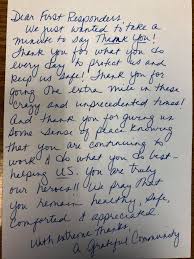 Dear First Responders,
We just wanted to take a
minute to say Thank You!
Thank you for what you do
every day to protect us and
keep us safe! Thank you for
going the extra mile in these
crazy and unprecedented times!
And thank you for giving us
some sense of peace knowing
that you are continuing to
work & do what you do best-
helping US. You are truly
our heroes!! We pray that
you remain healthy, safe,
comforted & appreciated.
With extreme thanks,
A Grateful Community